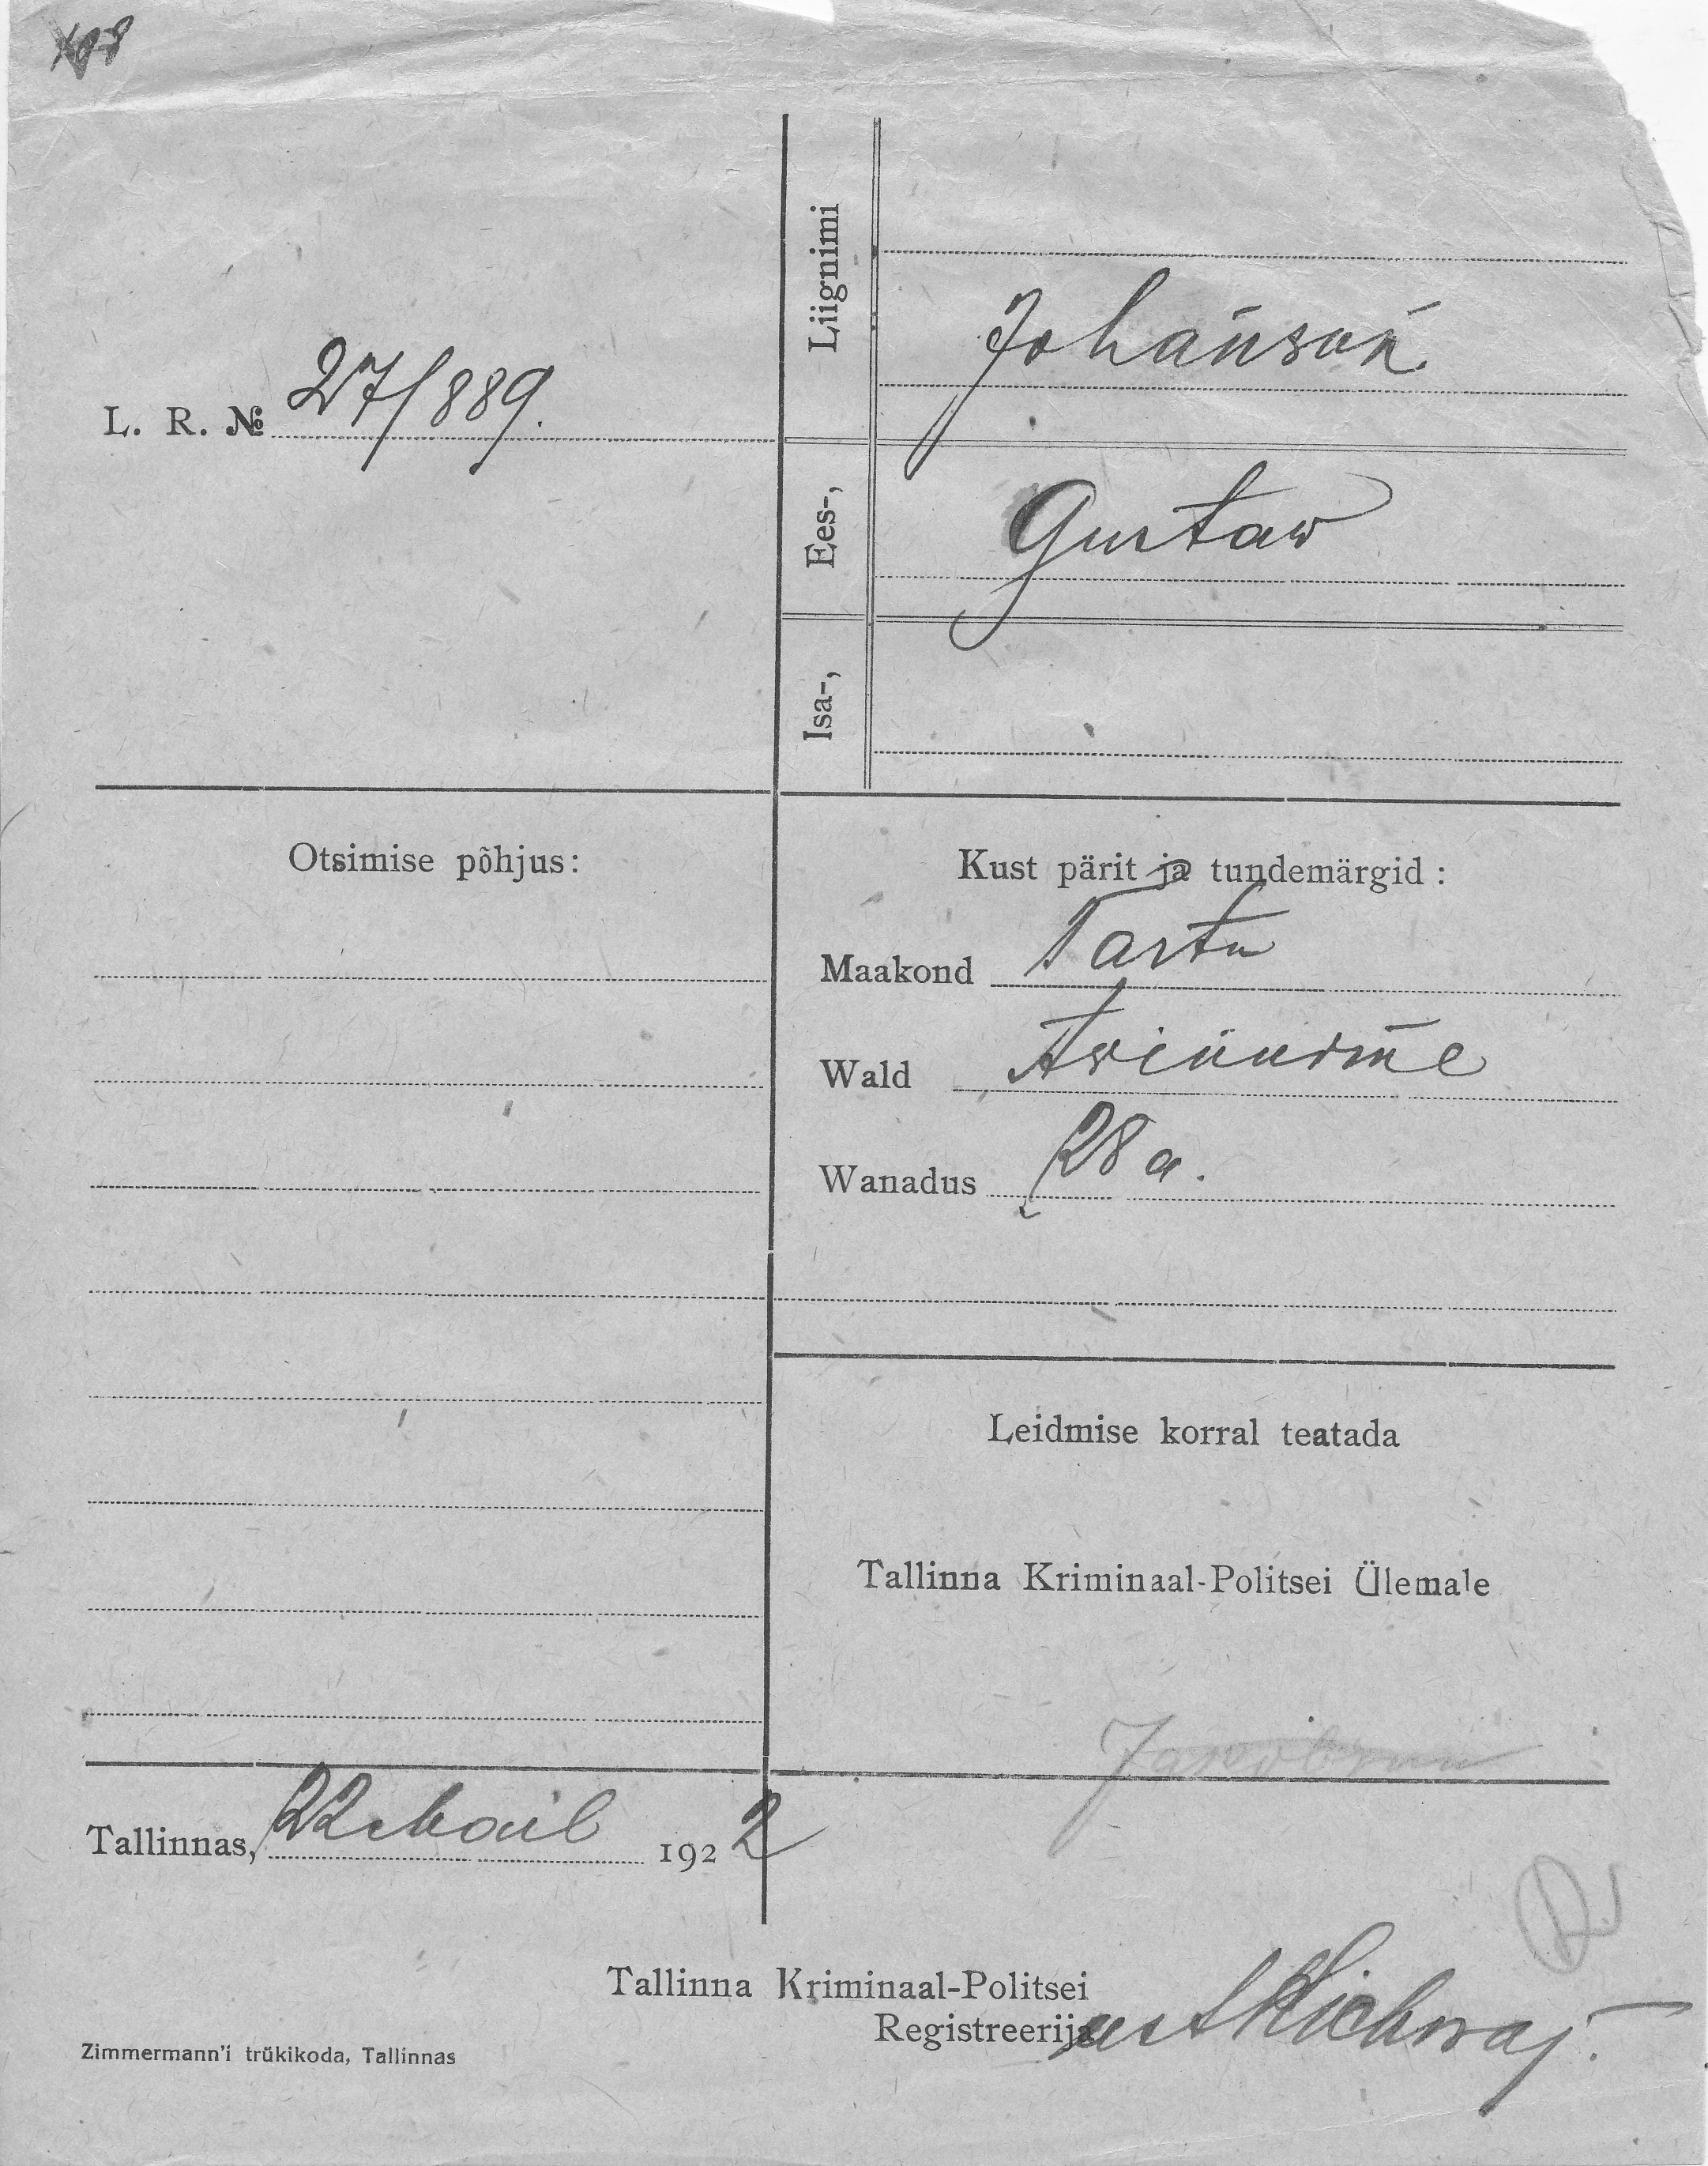 L. R. № 27/889.
Liignimi Johanson
Ees-, Gustaw
Isa-,
Otsimise põhjus:
Kust pärit ja tundemärgid:
Maakond Tartu
Wald Awinurme
Wanadus 28 a.
Leidmise korral teatada
Tallinna Kriminaal-Politsei Ülemale
Tallinnas, 22 Mail 1922
Tallinna Kriminaal-Politsei
Registreerija
Zimmermann'i trükikoda, Tallinnas